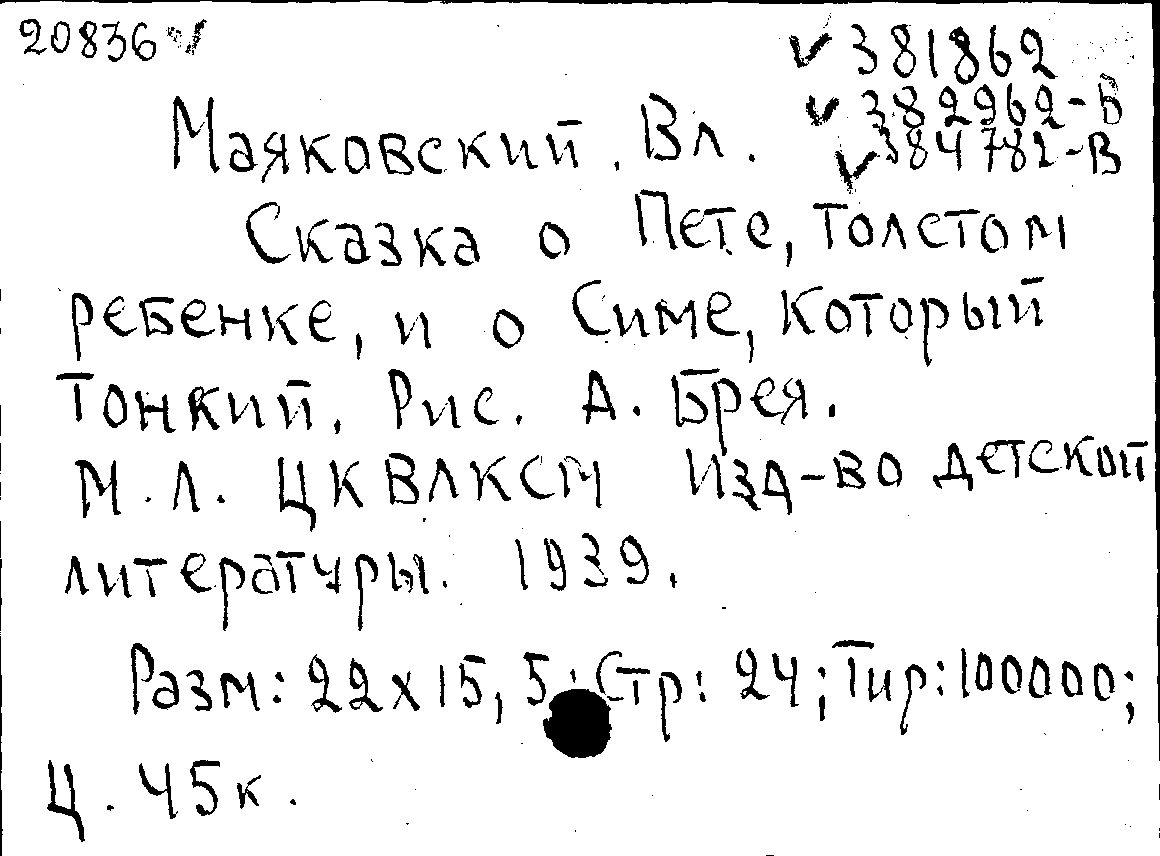 20836 ✓
✓ 381862
✓ 382962-Б
✓ 384782-В
Маяковский, Вл.
Сказка о Пете, толстом
ребенке, и о Симе, который
тонкий. Рис. А. Брея.
М.Л. ЦКВЛКСМ Изд-во детской
литературы. 1939.
Разм: 22х15,5; Стр: 24; Тир: 100000;
Ц. 45к.